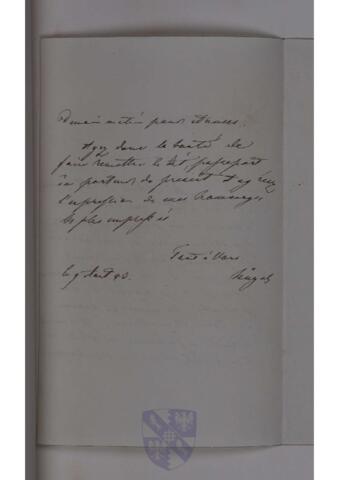 Demain matin pour Anvers.
Ayez donc la bonté de
faire remettre le dit passeport
au porteur du présent & agréez
l'expression de mes hommages
les plus empressés
Tout à Vous
le 9 Aout 43.